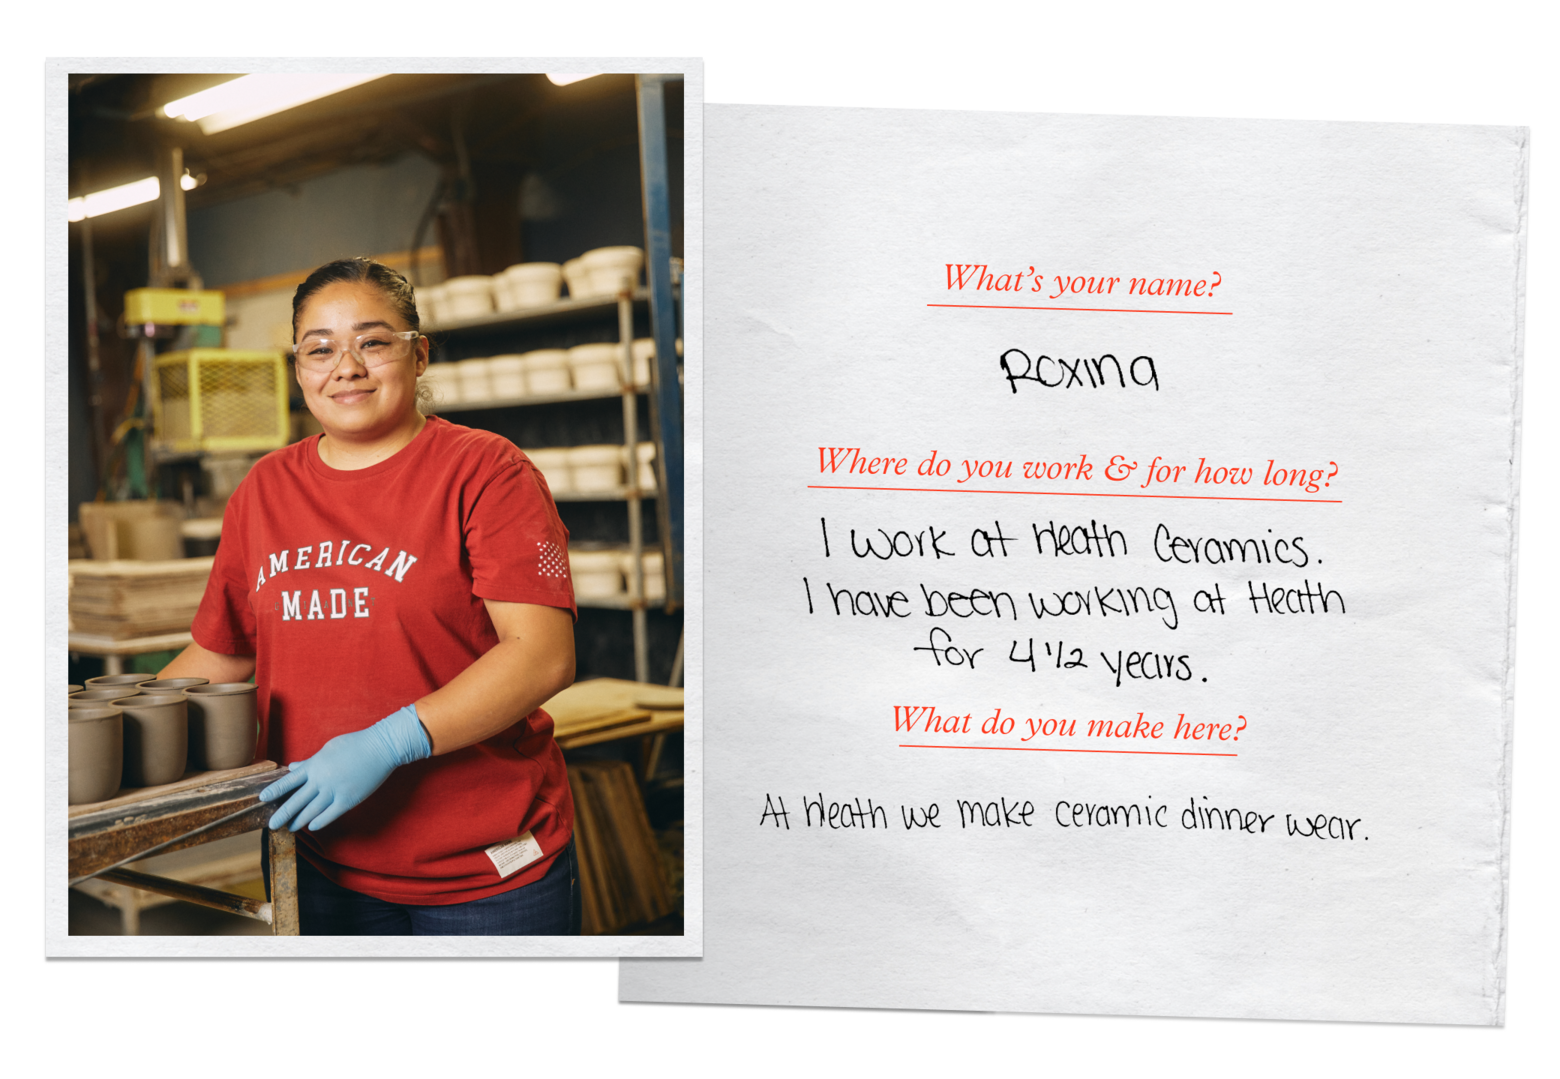 AMERICAN
MADE
What's your name?
Roxina
Where do you work & for how long?
I work at Heath Ceramics.
I have been working at Heath
for 4 1/2 years.
What do you make here?
At Heath we make ceramic dinner wear.